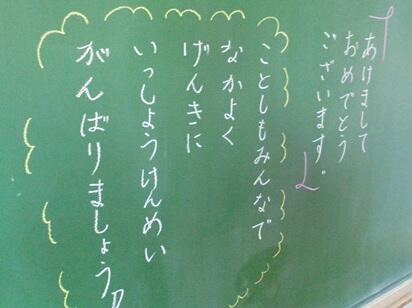 「あけまして
おめでとう
ございます。」
ことしもみんなで
なかよく
げんきに
いっしょうけんめい
がんばりましょう!!